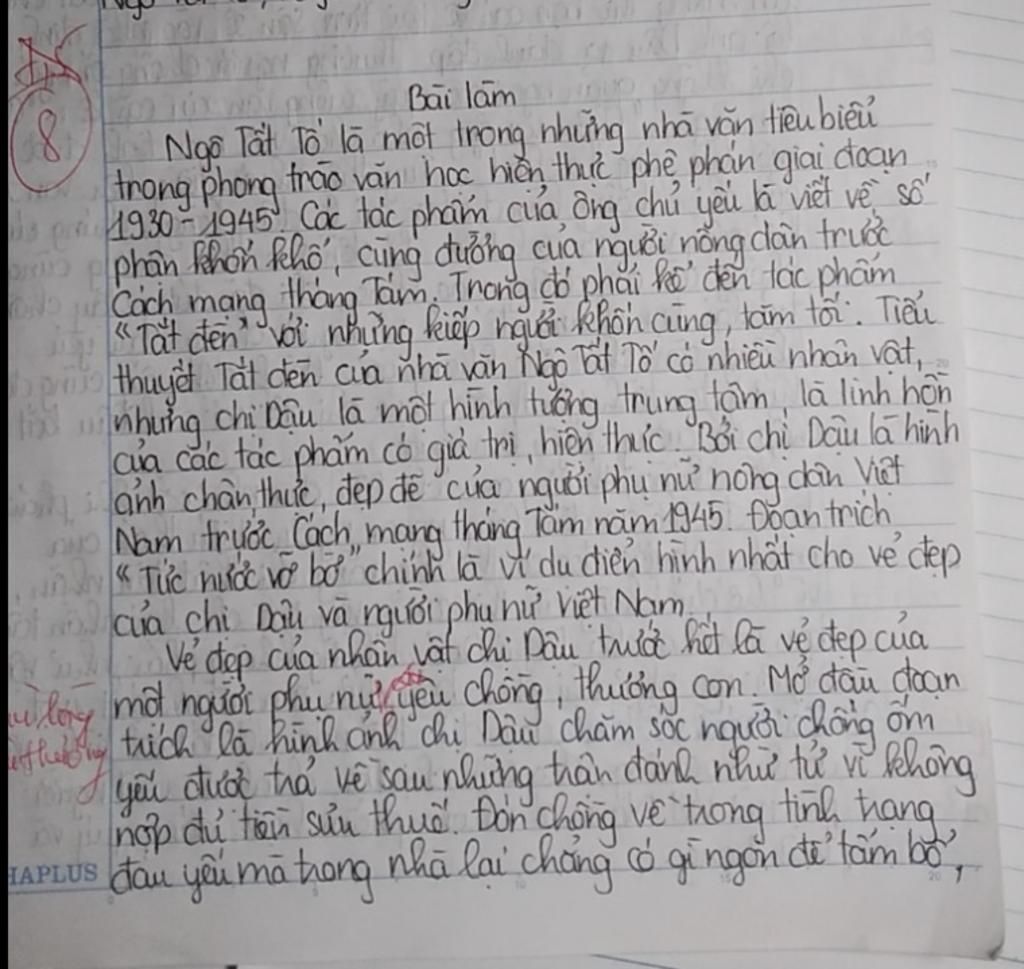 8
Bài làm
Ngô Tất Tố là một trong những nhà văn tiêu biểu
trong phong trào văn học hiện thực phê phán giai đoạn
1930-1945. Các tác phẩm của ông chủ yếu là viết về số
phận khốn khổ, cùng đường của người nông dân trước
Cách mạng tháng Tám. Trong đó phải kể đến tác phẩm
"Tắt đèn" với những kiếp người khốn cùng, tăm tối. Tiểu
thuyết Tắt đèn của nhà văn Ngô Tất Tố có nhiều nhân vật,
nhưng chị Dậu là một hình tượng trung tâm, là linh hồn
của các tác phẩm có giá trị hiện thực. Bởi chị Dậu là hình
ảnh chân thực, đẹp đẽ của người phụ nữ nông dân Việt
Nam trước Cách mạng tháng Tám năm 1945. Đoạn trích
"Tức nước vỡ bờ" chính là ví dụ điển hình nhất cho vẻ đẹp
của chị Dậu và người phụ nữ Việt Nam.
Vẻ đẹp của nhân vật chị Dậu trước hết là vẻ đẹp của
một người phụ nữ yêu chồng, thương con. Mở đầu đoạn
trích là hình ảnh chị Dậu chăm sóc người chồng ốm
yếu được trả về sau những trận đánh như tử vì không
nộp đủ tiền sưu thuế. Đón chồng về trong tình trạng
đau yếu mà trong nhà lại chẳng có gì ngon để tẩm bổ,
lòng
thương
HAPLUS